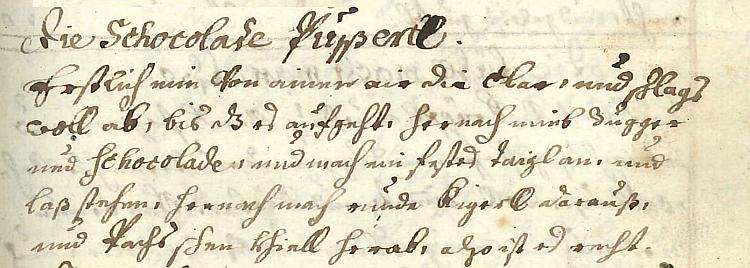 Die Schocolade Pusserll.
Erstlich nim von ainen air die Clar, und schlags
woll ab, bis dz es aufgeht, hernach nimb Zugger
und schocolade, und mach ein festes taigl an, und
laß stehen, hernach mach runde Kigerll darauß,
und Pachs schen khiell herab, also ist es recht.